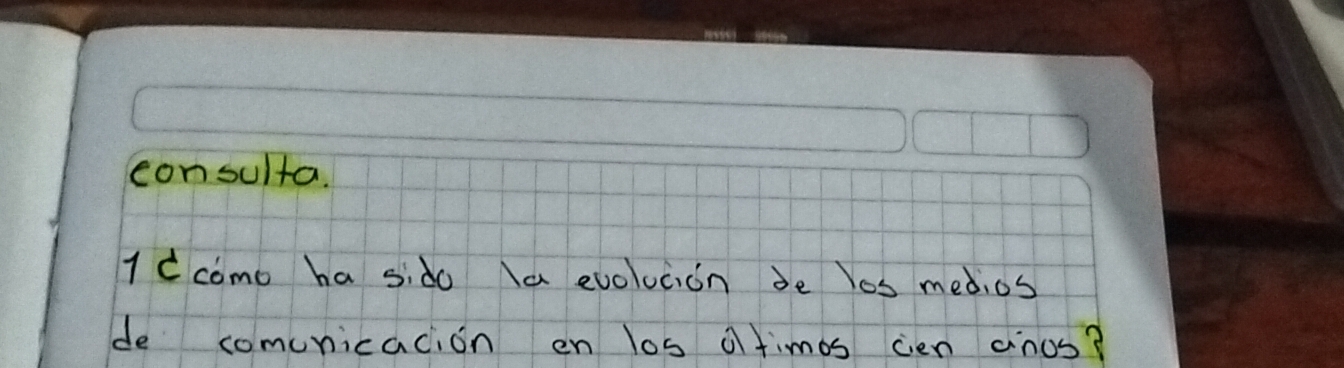 consulta.
1 ¿cómo ha sido la evolución de los medios
de comunicación en los últimos cien años?